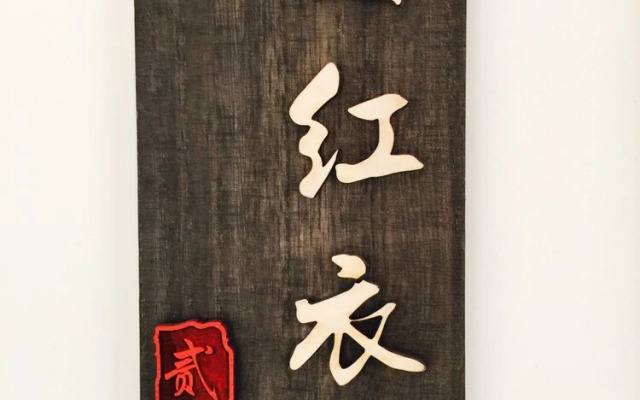 红衣
贰